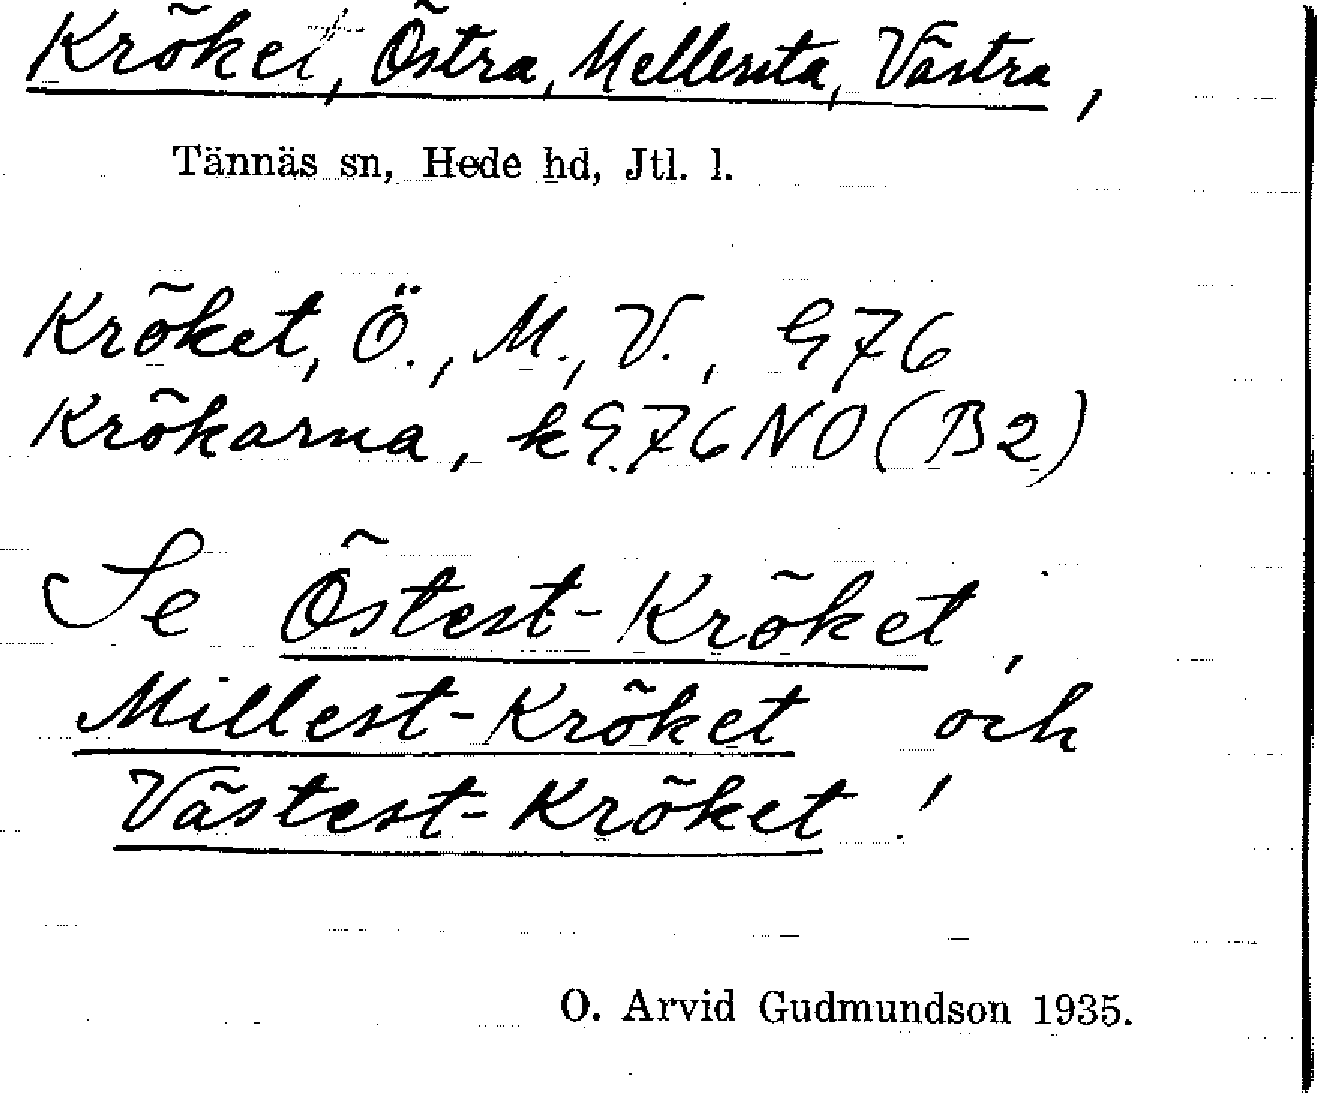 Kröket, Östra, Mellersta, Västra,
Tännäs sn, Hede hd, Jtl. l.
Kröket, Ö., M., V., G76
Krökarna, kG76NO(B2)
Se Östest-Kröket,
Millest-Kröket och
Västest-Kröket!
O. Arvid Gudmundson 1935.